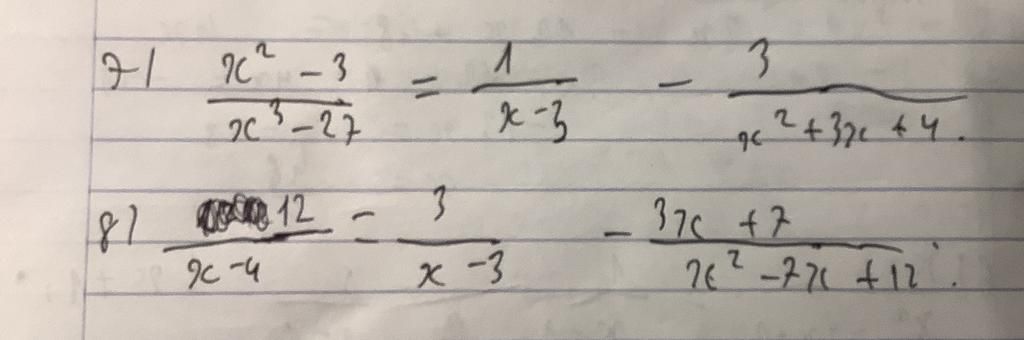 7) x² - 3 / x³ - 27 = 1 / x - 3 - 3 / x² + 3x + 4.
8) 12 / x - 4 = 3 / x - 3 - 3x + 7 / x² - 7x + 12.